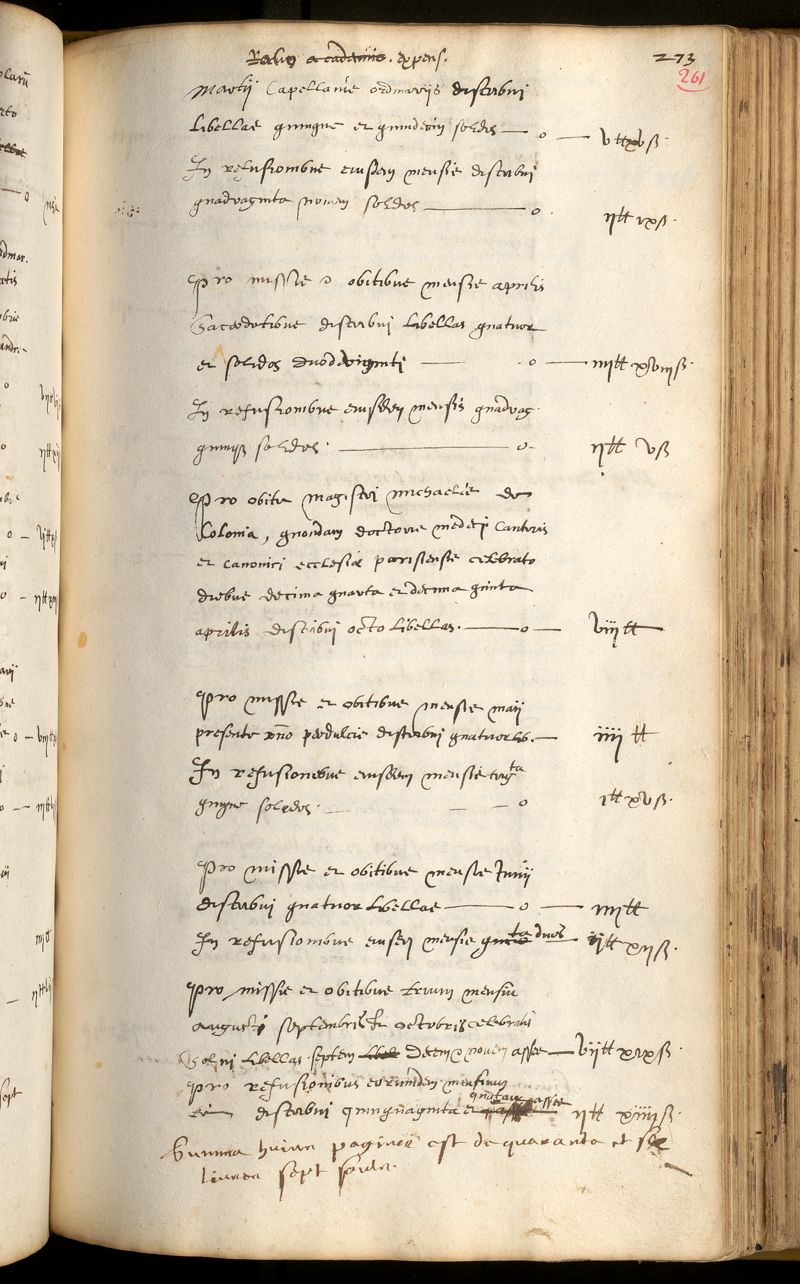 expens. 273
261
Martii Capellanis ordinariis distribui
libellas quinque et quindecim solidos — o — v ₶ xv ß.
In refusionibus eiusdem mensis distribui
quadraginta novem solidos — o. ij ₶ ix ß.
Pro missis et obitibus mensis aprilis
Sacerdotibus distribui libellas quatuor
et solidos duodeviginti — o — iiij ₶ xviij ß.
In refusionibus eiusdem mensis quadrag
quinque solidos. — o- ij ₶ v ß
Pro obitu magistri michaelis de
Colonia, quondam doctoris medici cantoris
et canonici ecclesiæ parisiensis celebrato
diebus decima quarta et decima quinta
aprilis distribui octo libellas. — o — viij ₶
Pro missis et obitibus mensis maij
presente distribui quatuor lb. — iiij ₶
In refusionibus eiusdem mensis trigta
quinque solidos. — — o j ₶ xv ß.
Pro missis et obitibus mensis Junij
distribui quatuor libellas — o — iiij ₶
In refusionibus eiusdem mensis duos ij ₶ xij ß.
Pro missis et obitibus trium mensium
augusti septembris et octobris celebratis
Solvi libellas septem decem et novem asses — vij ₶ xix ß.
Pro refusionibus eorumdem mensium
distribui quinquaginta et quatuor asses ij ₶ xiiij ß.
Summa huius pagine est de quaranta et six
livres sept soulz.